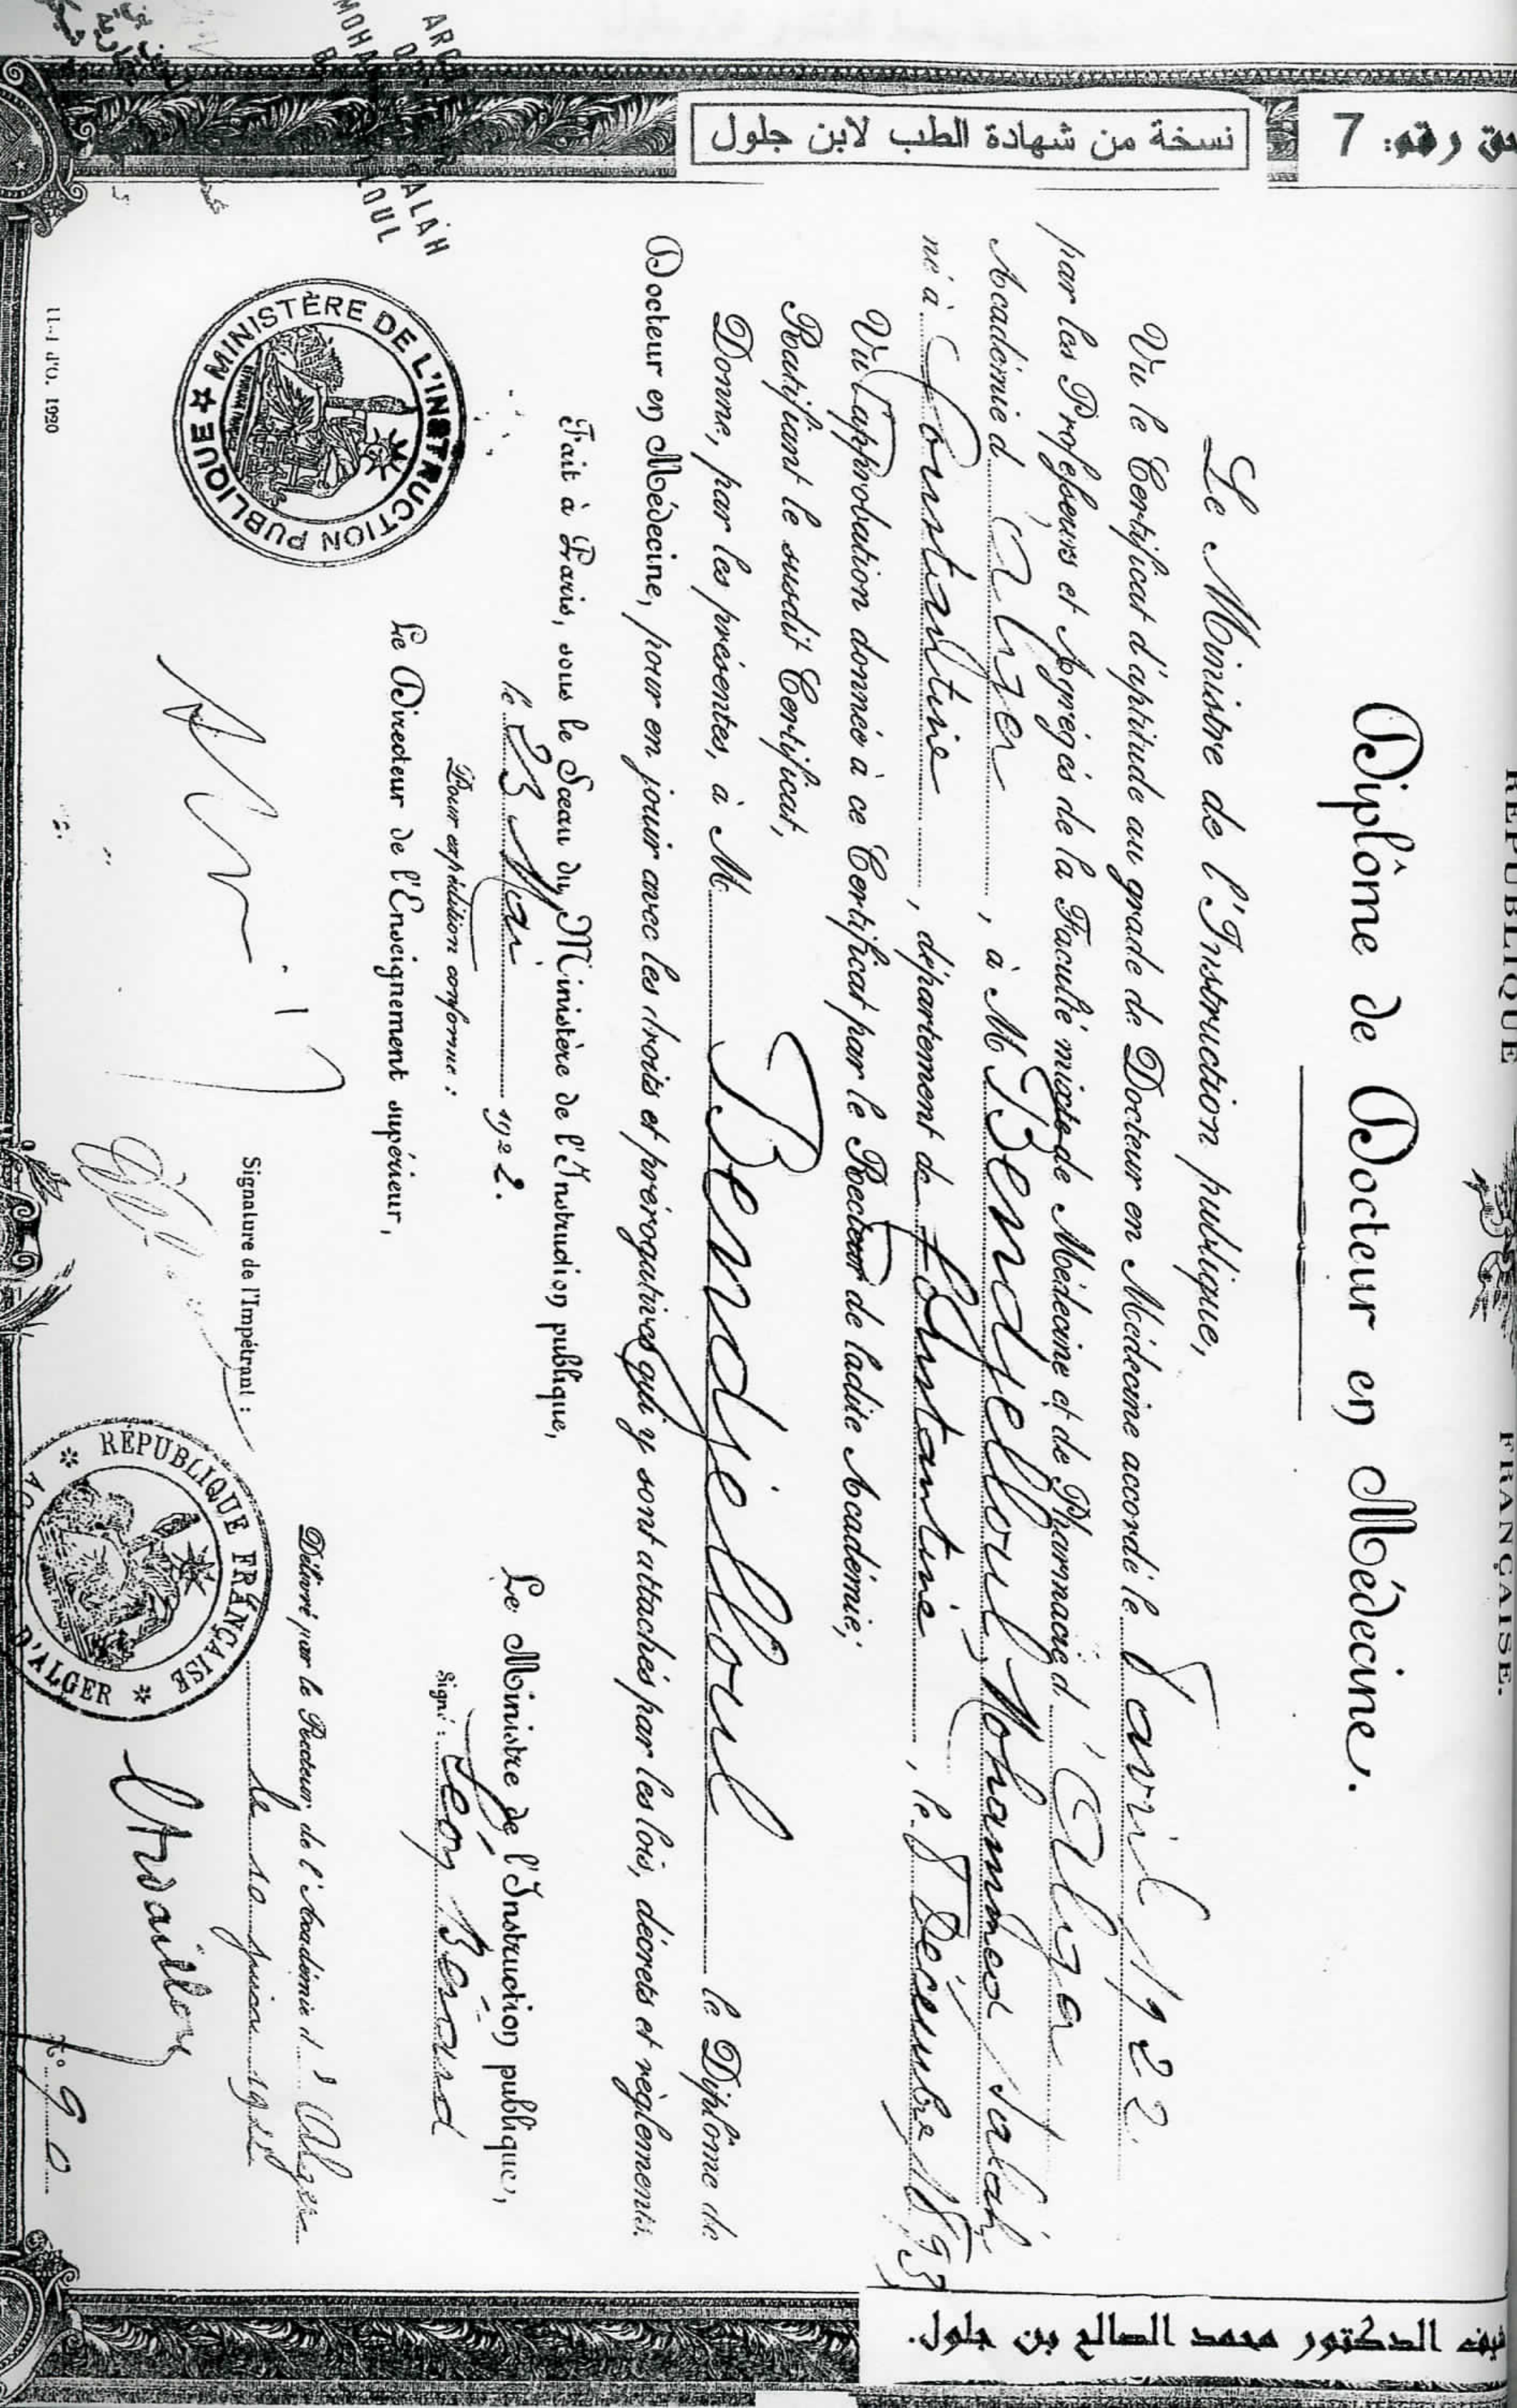 نسخة من شهادة الطب لابن جلول
رقم: 7
RÉPUBLIQUE FRANÇAISE.
Diplôme de Docteur en Médecine.
Le Ministre de l'Instruction publique,
Vu le Certificat d'aptitude au grade de Docteur en Médecine accordé le 8 avril 1922
par les Professeurs et Agrégés de la Faculté mixte de Médecine et de Pharmacie d'Alger
Académie d'Alger, à M Bendjelloul Mohammed Salah
né à Constantine, département de Constantine, le 8 Décembre 1893
Vu l'approbation donnée à ce Certificat par le Recteur de ladite Académie;
Ratifiant le susdit Certificat,
Donne, par les présentes, à M. Bendjelloul le Diplôme de
Docteur en Médecine, pour en jouir avec les droits et prérogatives qui y sont attachés par les lois, décrets et règlements.
Fait à Paris, sous le Sceau du Ministère de l'Instruction publique,
le 23 Mai 1922.
Pour expédition conforme:
Le Directeur de l'Enseignement supérieur,
Le Ministre de l'Instruction publique,
Signé: Léon Bérard
MINISTÈRE DE L'INSTRUCTION PUBLIQUE
Signature de l'Impétrant:
Délivré par le Recteur de l'Académie d'Alger
le 10 juin
RÉPUBLIQUE FRANÇAISE
D'ALGER
Ardaillon
N° 90
1920
الدكتور محمد الصالح بن جلول.